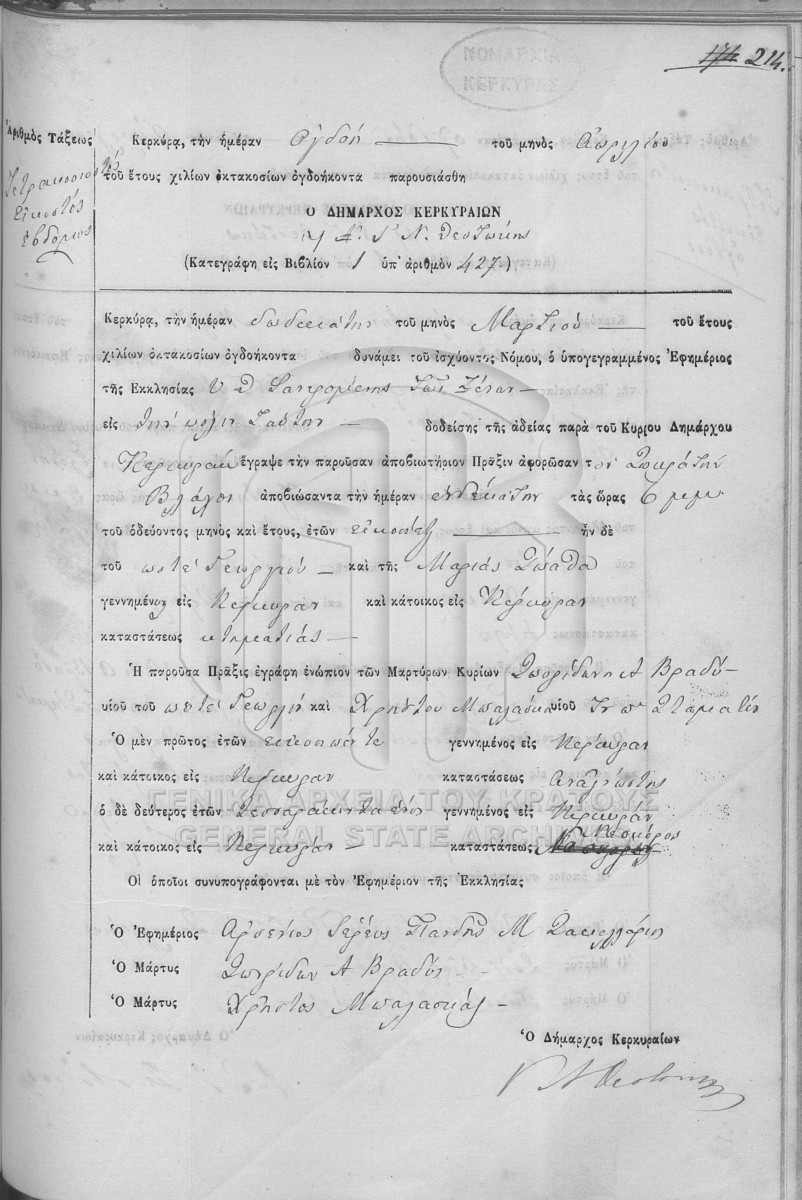 214.
Ἀριθμὸς Τάξεως
Τετρακοσιοστός
εἰκοστός
ἕβδομος
Κερκύρα, τὴν ἡμέραν ὀγδόη τοῦ μηνὸς Ἀπριλίου
τοῦ ἔτους χιλίων ὀκτακοσίων ὀγδοήκοντα παρουσιάσθη
Ο ΔΗΜΑΡΧΟΣ ΚΕΡΚΥΡΑΙΩΝ
Ν. Θεοτόκης
(Κατεγράφη εἰς Βιβλίον 1 ὑπ' ἀριθμὸν 427)
Κερκύρα, τὴν ἡμέραν δωδεκάτην τοῦ μηνὸς Μαρτίου τοῦ ἔτους
χιλίων ὀκτακοσίων ὀγδοήκοντα δυνάμει τοῦ ἰσχύοντος Νόμου, ὁ ὑπογεγραμμένος Ἐφημέριος
τῆς Ἐκκλησίας Υ Θ τῶν Ξένων
εἰς τὴν πόλιν ταύτην δοθείσης τῆς ἀδείας παρὰ τοῦ Κυρίου Δημάρχου
ἔγραψε τὴν παροῦσαν ἀποβιωτήριον Πρᾶξιν ἀφορῶσαν τον Σωκράτην
Βλάχο ἀποβιώσαντα τὴν ἡμέραν ἑνδεκάτην τὰς ὥρας 6 μ μ
τοῦ ὁδεύοντος μηνὸς καὶ ἔτους, ἐτῶν εἰκοσιέξ ἦν δὲ
τοῦ ποτέ Γεωργίου καὶ τῆς Μαρίας
γεννημένος εἰς Κέρκυραν καὶ κάτοικος εἰς Κέρκυραν
καταστάσεως κτηματίας
Ἡ παροῦσα Πρᾶξις ἐγράφη ἐνώπιον τῶν Μαρτύρων Κυρίων Σπυρίδωνη Α Βραδύ
υἱοῦ τοῦ ποτέ Γεωργίου καὶ Χρήστου Μπαλάσκα υἱοῦ Σταματίου
Ὁ μὲν πρῶτος ἐτῶν εἰκοσιπέντε γεννημένος εἰς Κέρκυραν
καὶ κάτοικος εἰς Κέρκυραν καταστάσεως ἀναγνώστης
ὁ δὲ δεύτερος ἐτῶν τεσσαράκοντα γεννημένος εἰς Κέρκυραν
καὶ κάτοικος εἰς Κέρκυραν καταστάσεως Νεοκόρος
Οἱ ὁποῖοι συνυπογράφονται μὲ τὸν Ἐφημέριον τῆς Ἐκκλησίας
Ὁ Ἐφημέριος Ἀρσένιος Ἱερεὺς Μ
Ὁ Μάρτυς Σπυρίδων Α Βραδύς
Ὁ Μάρτυς Χρῆστος Μπαλάσκας
Ὁ Δήμαρχος Κερκυραίων
ΓΕΝΙΚΑ ΑΡΧΕΙΑ ΤΟΥ ΚΡΑΤΟΥΣ
GENERAL STATE ARCHIVES